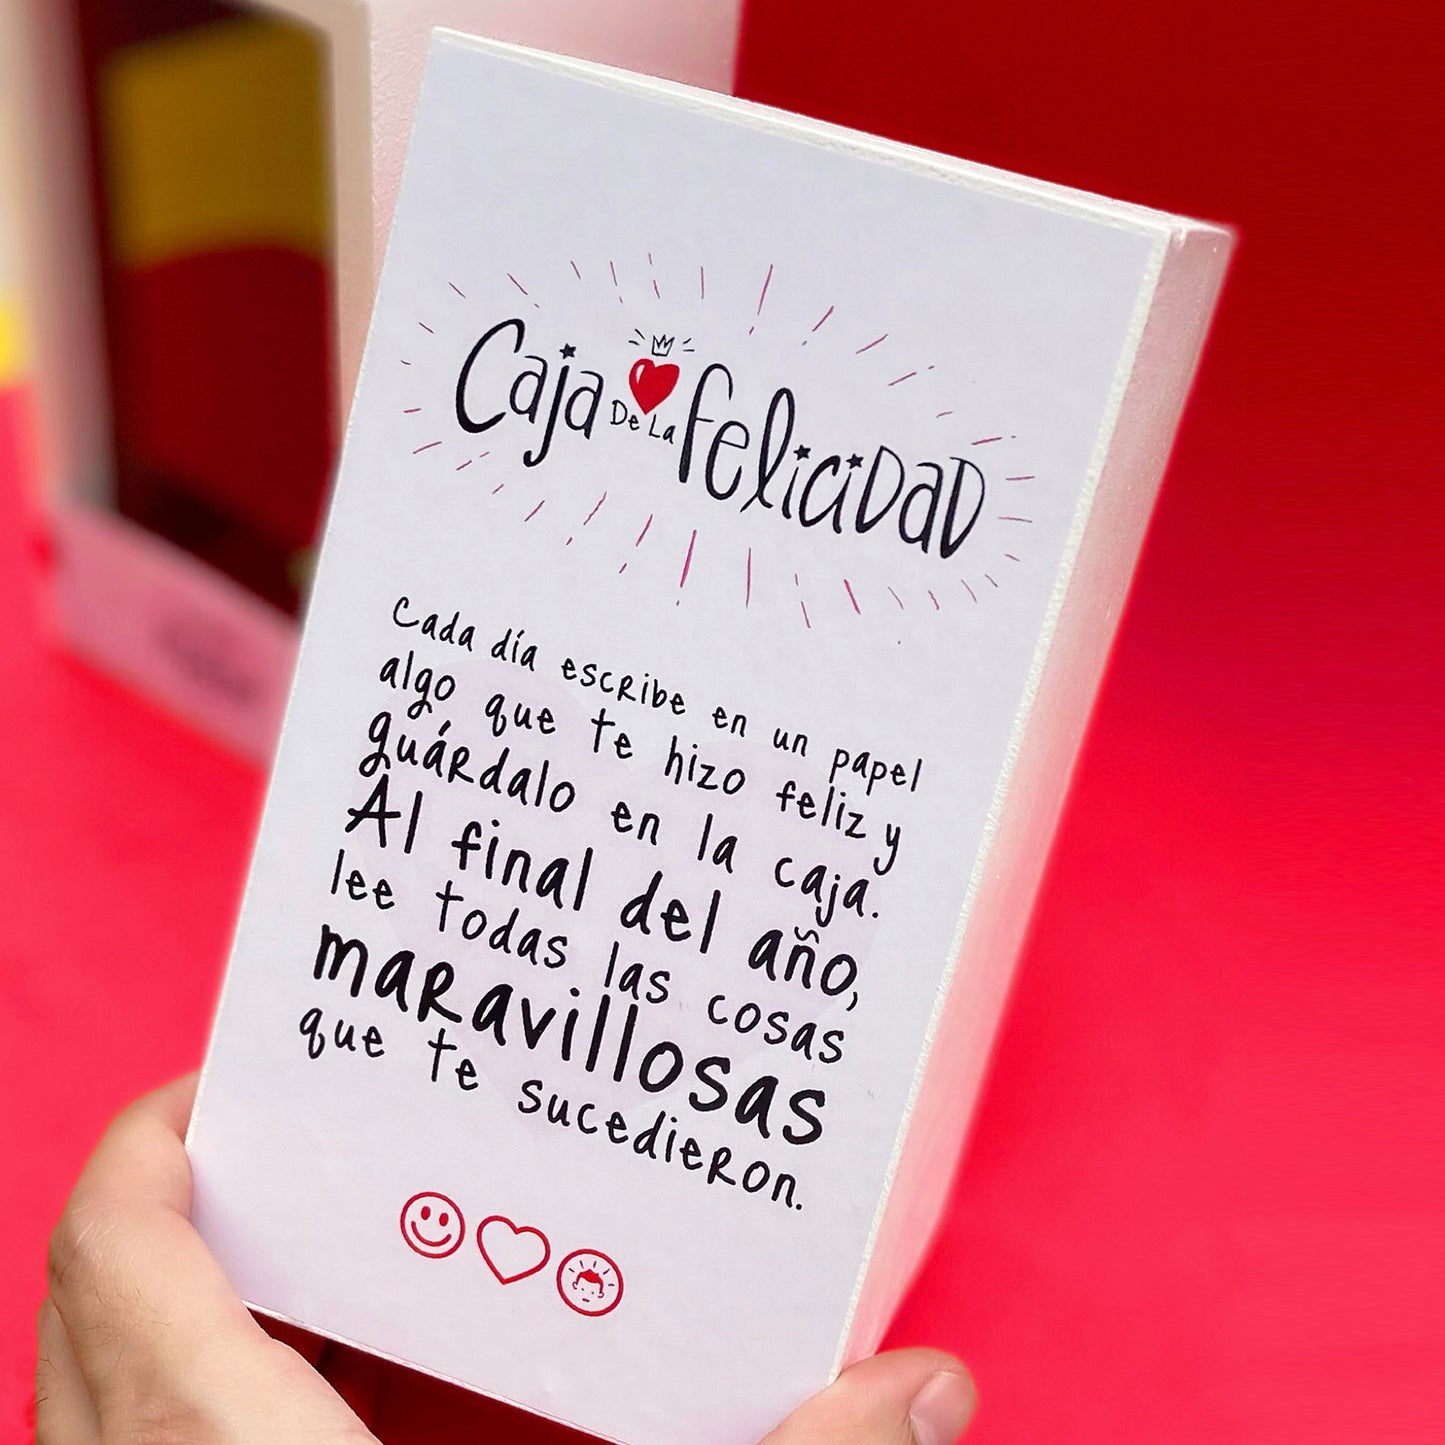 Caja De La felicidad
Cada día escribe en un papel
algo que te hizo feliz y
guárdalo en la caja.
Al final del año,
lee todas las cosas
maravillosas
que te sucedieron.